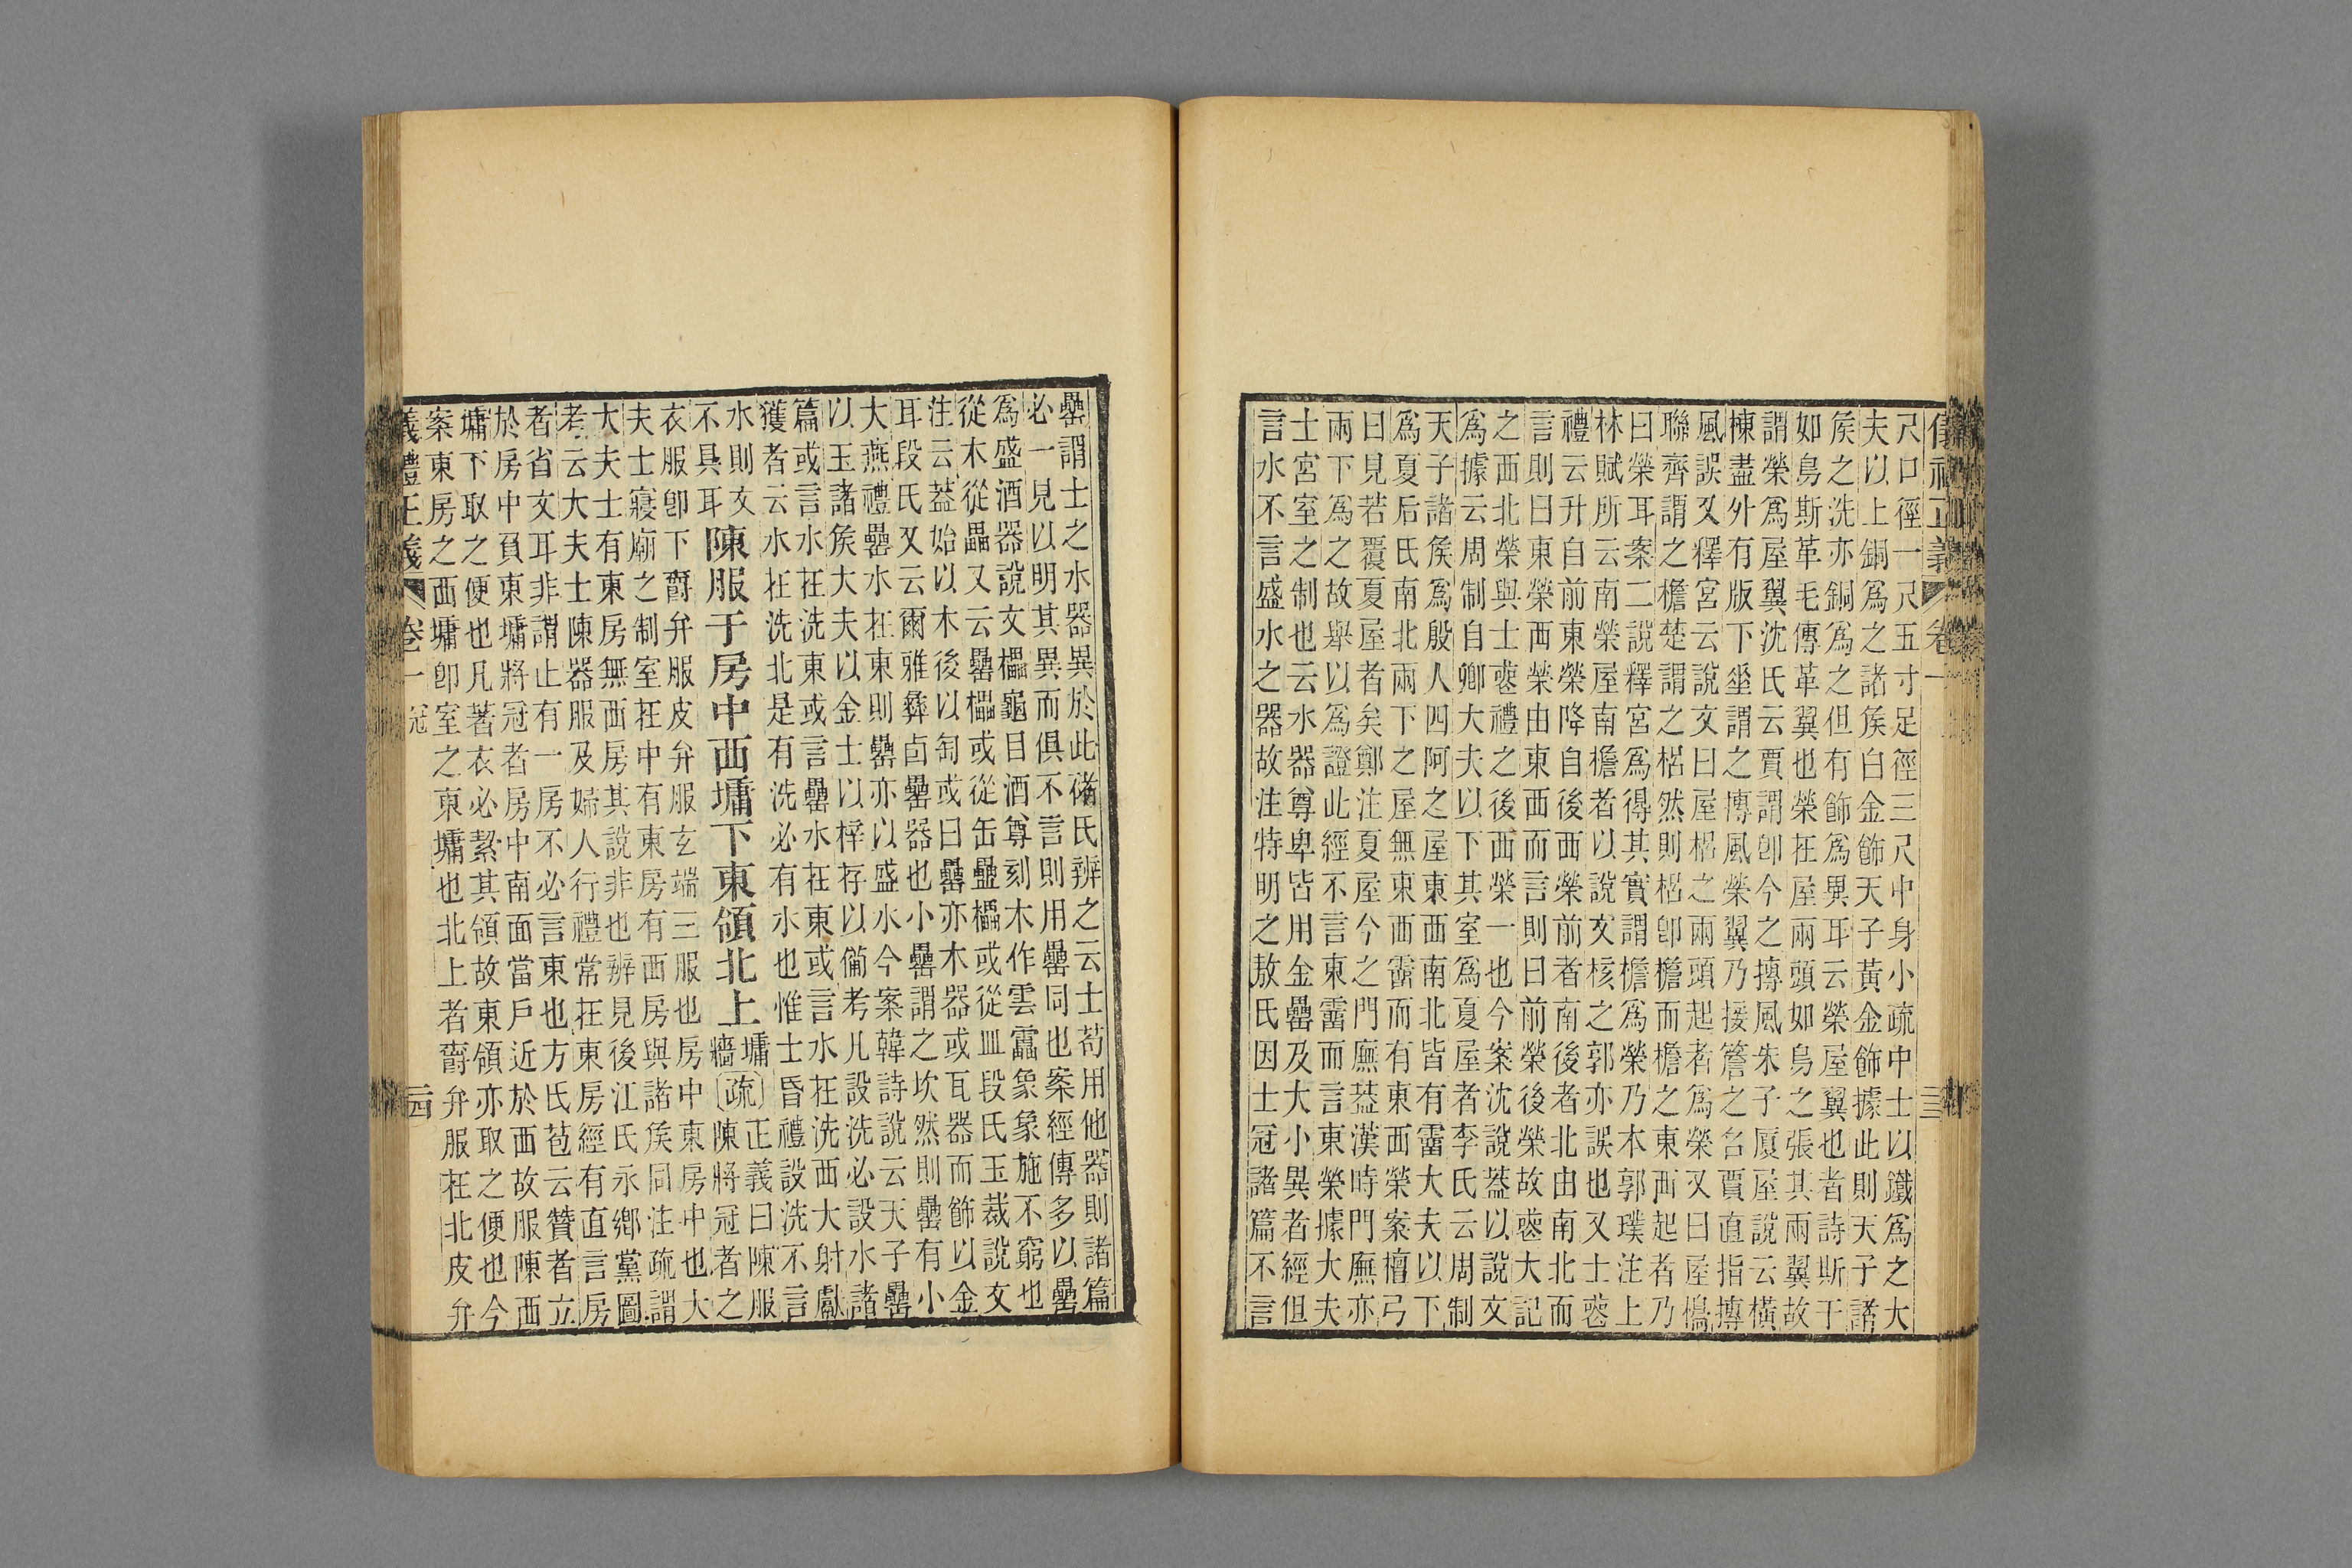 儀禮正義 卷一 二三
尺口徑一尺五寸足徑三尺中身小疏中士以鐵爲之大
夫以上銅爲之諸矦白金飾天子黃金飾據此則天子諸
矦之洗亦銅爲之但有飾爲異耳云榮屋翼也者詩斯干
如鳥斯革毛傳革翼也榮在屋兩頭如鳥之張其兩翼故
謂榮爲屋翼沈氏云賈謂卽今之摶風朱子厦屋說云橫
棟盡外有版下垂謂之摶風榮翼乃接簷之名賈直指摶
風誤又釋宮云說文曰屋梠之兩頭起者爲榮又曰屋㮰
聯齊謂之檐楚謂之梠然則梠卽檐而檐之東西起者乃
曰榮耳案二說釋宮爲得其實謂檐爲榮乃本郭璞注上
林賦所云南榮屋南檐者以說文核之郭亦誤也又士喪
禮云升自前東榮降自後西榮前者南後者北由南北而
言則曰東榮西榮由東西而言則曰前榮後榮故喪大記
之西北榮與士喪禮之後西榮一也今案沈說葢以說文
爲據云周制自卿大夫以下其室爲夏屋者李氏云周制
天子諸矦爲殷人四阿之屋東西南北皆有霤大夫以下
爲夏后氏南北兩下之屋無東西霤而有東西榮案檀弓
曰見若覆夏屋者矣鄭注夏屋今之門廡葢漢時門廡亦
兩下爲之故舉以爲證此經不言東霤而言東榮據大夫
士宮室之制也云水器尊卑皆用金罍及大小異者經但
言水不言盛水之器故注特明之敖氏因士冠諸篇不言
罍謂士之水器異於此褚氏辨之云士苟用他器則諸篇
必一見以明其異而俱不言則用罍同也案經傳多以罍
爲盛酒器說文櫑龜目酒尊刻木作雲靁象象施不窮也
從木從畾又云罍櫑或從缶䀇櫑或從皿段氏玉裁說文
注云葢始以木後以匋或曰罍亦木器或瓦器而飾以金
耳段氏又云爾雅彝卣罍器也小罍謂之坎然則罍有小
大燕禮罍水在東則罍亦以盛水今案韓詩說云天子罍
以玉諸矦大夫以金士以梓存以備考凡設洗必設水諸
篇或言水在洗東或言罍水在東或言水在洗西大射獻
獲者云水在洗北是有洗必有水也惟士昏禮設洗不言
水則文
不具耳陳服于房中西墉下東領北上墉牆〔疏〕正義曰陳服
陳將冠者之
衣服卽下爵弁服皮弁服玄端三服也房中東房中也大
夫士寢廟之制室在中有東房有西房與諸矦同注疏謂
大夫士有東房無西房其說非也辨見後江氏永鄉黨圖
考云大夫士陳器服及婦人行禮常在東房經有直言房
者省文耳非謂止有一房不必言東也方氏苞云贊者立
於房中負東墉將冠者房中南面當戶近於西故服陳西
墉下取之便也凡著衣必絜其領故東領亦取之便也今
案東房之西墉卽室之東墉也北上者爵弁服在北皮弁
儀禮正義 卷一 冠 二四